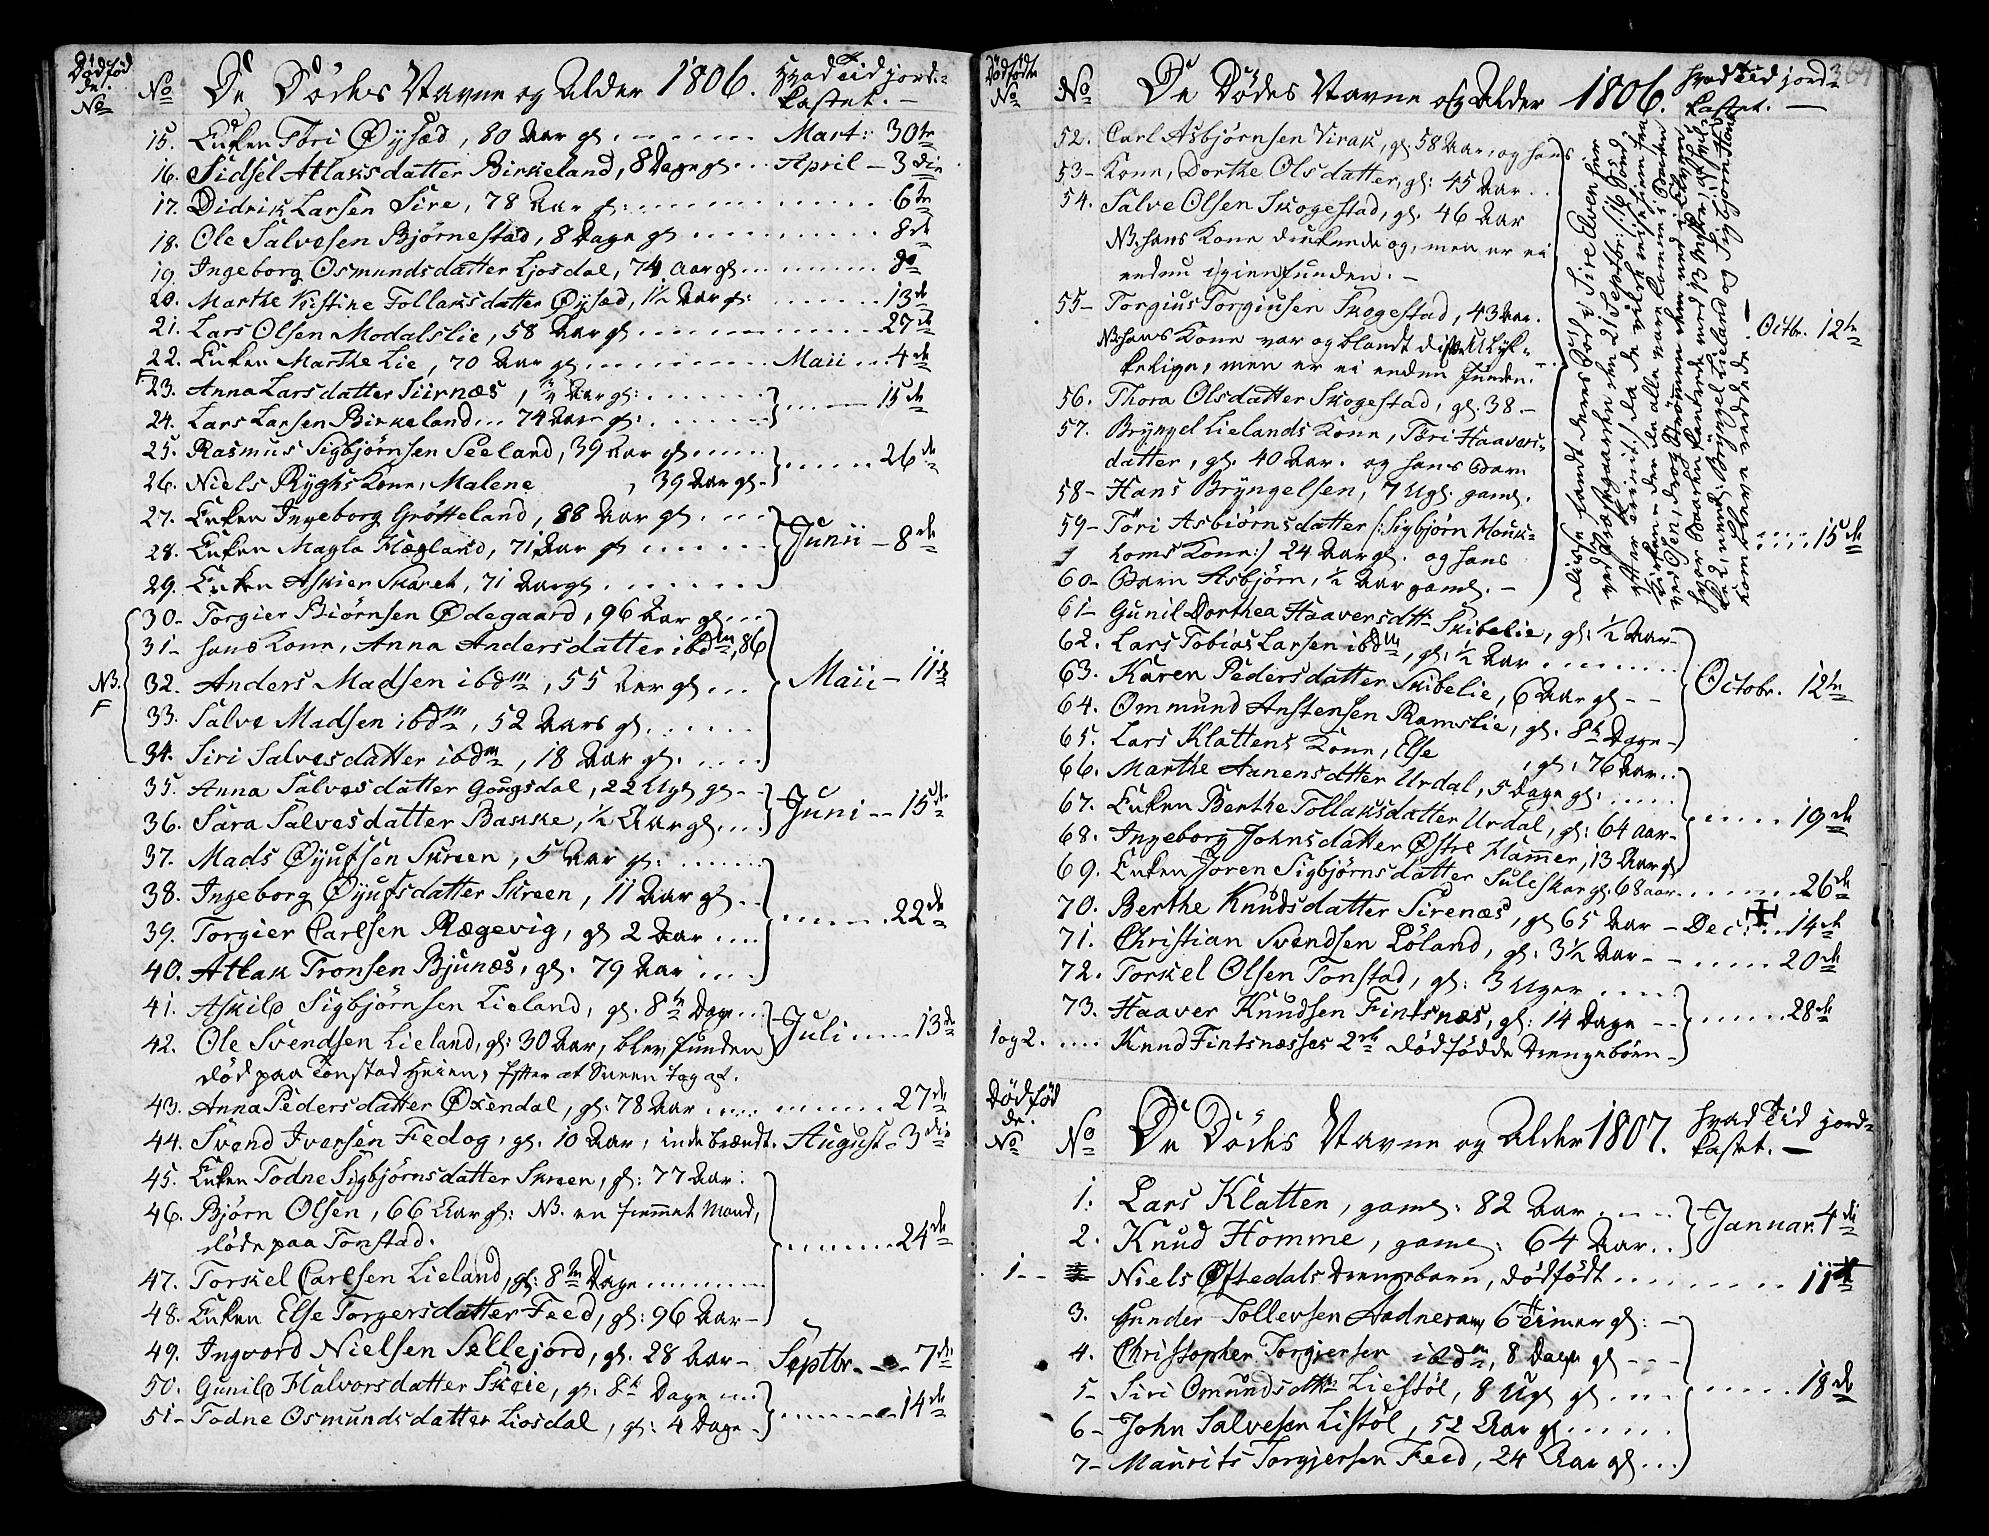 Dødfød
de.
No
No De Dødes Navne og Alder 1806. Hvad Tid jord-
kastet. —
15. Enken Töri Øÿsæd, 80 Aar gl. Mart: 30te
16. Sidsel Atlaksdatter Birkeland, 8 Dage gl. April - 3die
17. Didrik Larsen Sire, 78 Aar gl: 6te
18. Ole Salvesen Bjørnestad, 8 Dage gl 8de
19. Ingeborg Osmundsdatter Ljosdal, 74 Aar gl. 8de
20. Marthe Kistine Tollaksdatter Øÿsæd, 1½ Aar gl: 13de
21. Lars Olsen Modalslie, 58 Aar gl 27de
22. Enken Marthe Lie, 70 Aar gl. Maii 4de
23. Anna Larsdatter Siirnæs, ¾ Aar gl:
24. Lars Larsen Birkeland 74 Aar gl. 15de
25. Rasmus Sigbjørnsen Seeland, 39 Aar gl.
26. Niels Ryghs Kone, Malene , 39 Aar gl. 26de
27. Enken Ingeborg Grötteland, 88 Aar gl.
28. Enken Magla Hægland, 71 Aar gl Junii - 8de
29. Enken Askier Skaret, 71 Aar gl.
30- Torgier Biörnsen Ødegaard, 96 Aar gl.
31- hans Kone, Anna Andersdatter ibdm, 86
NB. 32. Anders Madsen ibdm, 55 Aar gl. Maii - 11te
33. Salve Madsen ibdm, 52 Aars gl.
34. Siri Salvesdatter ibdm, 18 Aar gl.
35. Anna Salvesdatter Gougsdal, 22 Ugl gl.
36. Sara Salvesdatter Bakke, ½ Aar gl. Juni - 15de
37. Mads Øÿufsen Skreen, 5 Aar gl:
38. Ingeborg Øÿufsdatter Skreen, 11 Aar gl.
39. Torgier Carlsen Rægevig, gl 2 Aar 22de
40. Atlak Tronsen Bjunæs, gl. 79 Aar
41. Askild Sigbjørnsen Lieland, gl. 8te Dage
42. Ole Svendsen Lieland, gl: 30 Aar, blev funden Juli 13de
død paa Tonstad Heien, efter at Sneen tog af.
43. Anna Pedersdatter Øxendal, gl: 78 Aar 27de
44. Svend Iversen Fedog, gl. 10 Aar, indebrændt. August - 3die
45. Enken Todne Sigbjørnsdatter Skreen, gl: 77 Aar:
46. Bjørn Olsen, 66 Aar gl: NB. en fremmet Mand,
døde paa Tonstad. 24de
47. Torkel Carlsen Lieland, gl: 8te Dage
48. Enken Else Torgersdatter Feed, gl: 96 Aar -
49. Ingvord Nielsen Sellejord, gl. 28 Aar - Septbr. 7de
50. Gunild Halvorsdatter Skeie, gl. 8te Dage
51- Todne Osmundsdatter Liosdal, gl: 4 Dage - 14de
Dødfødte
No
No De Dødes Navne og Alder 1806. Hvad Tid jord- 364
kastet. —
52. Carl Asbjørnsen Virak, gl. 58 Aar, og hans
53- Kone, Dorthe Olsdatter, gl: 45 Aar.
54. Salve Olsen Skogestad, gl. 46 Aar
NB. hans Kone druknede og, men er ei
endnu igienfunden. -
55- Torgius Torgiusen Skogestad, 43 Aar.
NB. hans Kone var og blandt disse Ulyk-
kelige, men er ei endnu funden. Octbr. 12te
56. Thora Olsdatter Skogestad, gl. 38 -
57. Brÿngel Lielands Kone, Töri Haavers-
datter, gl. 40 Aar. og hans Barn
58- Hans Brÿngelsen, 7 Ugl: gaml.
59- Töri Asbiørnsdatter /: Sigbjørn Houk-
homs Kone:/ 24 Aar gl. og hans 15de
60- Barn Asbjørn, ½ Aar gaml. -
Disse fandt deres Död i Sire Elven her
ved Præstegaarden den 21 Septbr: /: 16 Sönd.
efter Trinit:/ da de vilde reise hiem fra
Kirken - da de alle vare komne i Baaden
ved Osen, drog Strömmen dem ned i Elven
hvor Baaden kantrede med 13 Mennesker, af hvil-
ke 2, nemlig Brÿngel Lieland og Sigbjørn Houk
hom bleve reddede
61- Gunild Dorthea Haaversdtr Skibelie, gl: ½ Aar
62. Lars Tobias Larsen ibdm, gl: ½ Aar
63. Karen Pedersdatter Skibelie, 6 Aar gl - - Octobr. 12te
64. Ommund Anstensen Ramslie, gl. 8te Dage -
65. Lars Klattens Kone, Else , gl: 76 Aar.
66. Marthe Aanensdtter Urdal, 5 Dage gl:
67. Enken Berthe Tollaksdatter Urdal, gl: 64 Aar - 19de
68. Ingeborg Johnsdatter Østre Hammer, 13 Aar gl
69. Enken Joren Sigbjørnsdatter Suleskar gl 68 aar 26de
70. Berthe Knudsdatter Sirenæs, gl 65 Aar - Dec: 14de
71. Christian Svendsen Löland, gl: 3½ Aar - 20de
72. Torkel Olsen Tonstad, gl: 3 Uger
73. Haaver Knudsen Fintsnæs, gl: 14 Dage - 28de
1 og 2. Knud Fintsnæsses 2de dödfødde Drengebörn -
Dødfød
de.
No
No De Dødes Navne og Alder 1807. Hvad Tid jord-
kastet. —
1. Lars Klatten, gaml: 82 Aar
2. Knud Homme, gaml: 64 Aar. Januar. 4de
1 - Niels Øftedals Drengebarn, dödfödt 11te
3. Gunder Tollevsen Aadneram, 6 Timer gl: -
4. Christopher Torgiersen ibdm, 8 Dage gl
5- Siri Omundsdtr Liestøl, 8 Ugl gl. 18de
6- John Salvesen Listöl, 52 Aar gl.
7- Maurits Torgjersen Feed, 24 Aar gl.